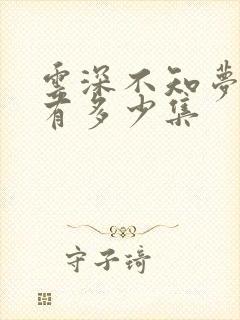 雲深不知夢
有多少集
守子琦